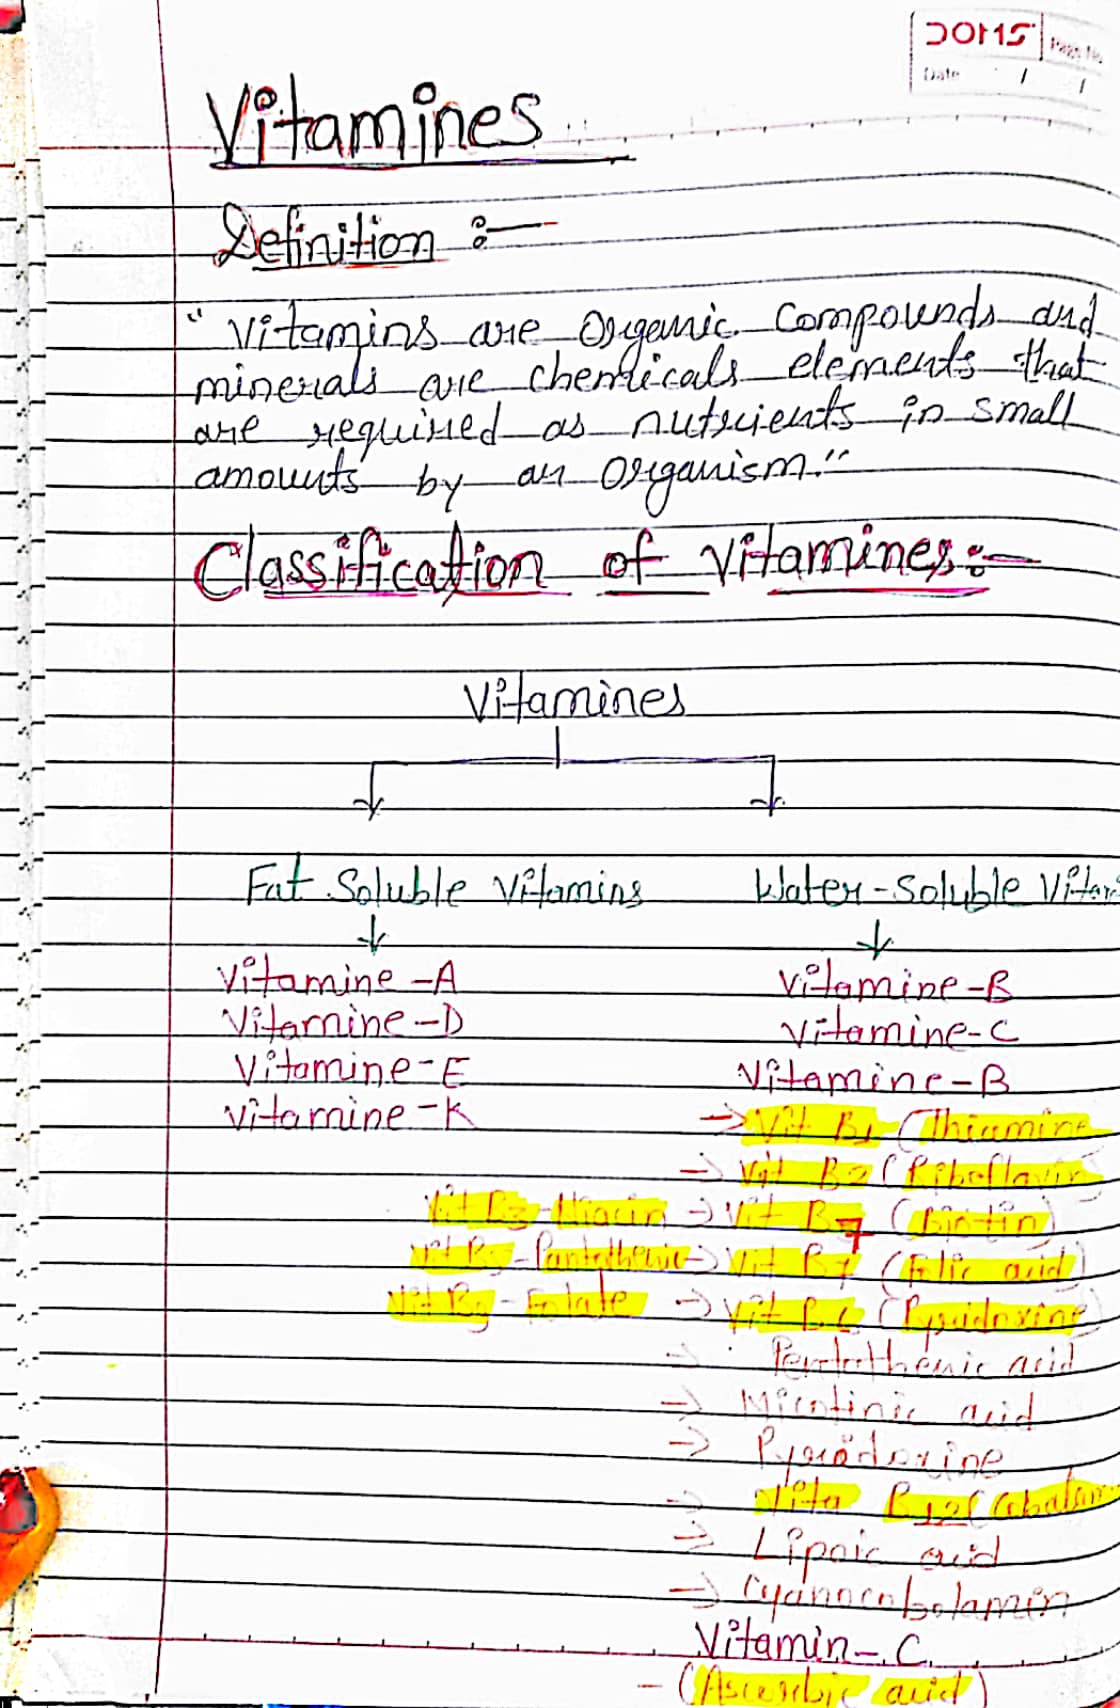 DOMS
Page No.
Date / /
Vitamines
Definition :-
"Vitamins are Organic Compounds and
minerals are chemicals elements that
are required as nutrients in small
amounts by an Organism."
Classification of vitamines:-
Vitamines
Fat Soluble Vitamins
Water-Soluble Vitam
Vitamine-A
Vitamine-B
Vitamine-D
Vitamine-C
Vitamine-E
Vitamine-B
Vitamine-K
→ Vit B1 (Thiamine
→ Vit B2 (Riboflavin
Vit B3-Niacin → Vit B7 (Biotin)
Vit B5-Pantothenic → Vit B7 (Folic acid)
Vit B9-Folate → Vit B6 (Pyridoxine)
→ Pentothenic acid
→ Nicotinic acid
→ Pyridoxine
→ Vita B12 (Cobalam
→ Lipoic acid
→ Cyanocobolamin
Vitamin-C
- (Ascorbic acid)